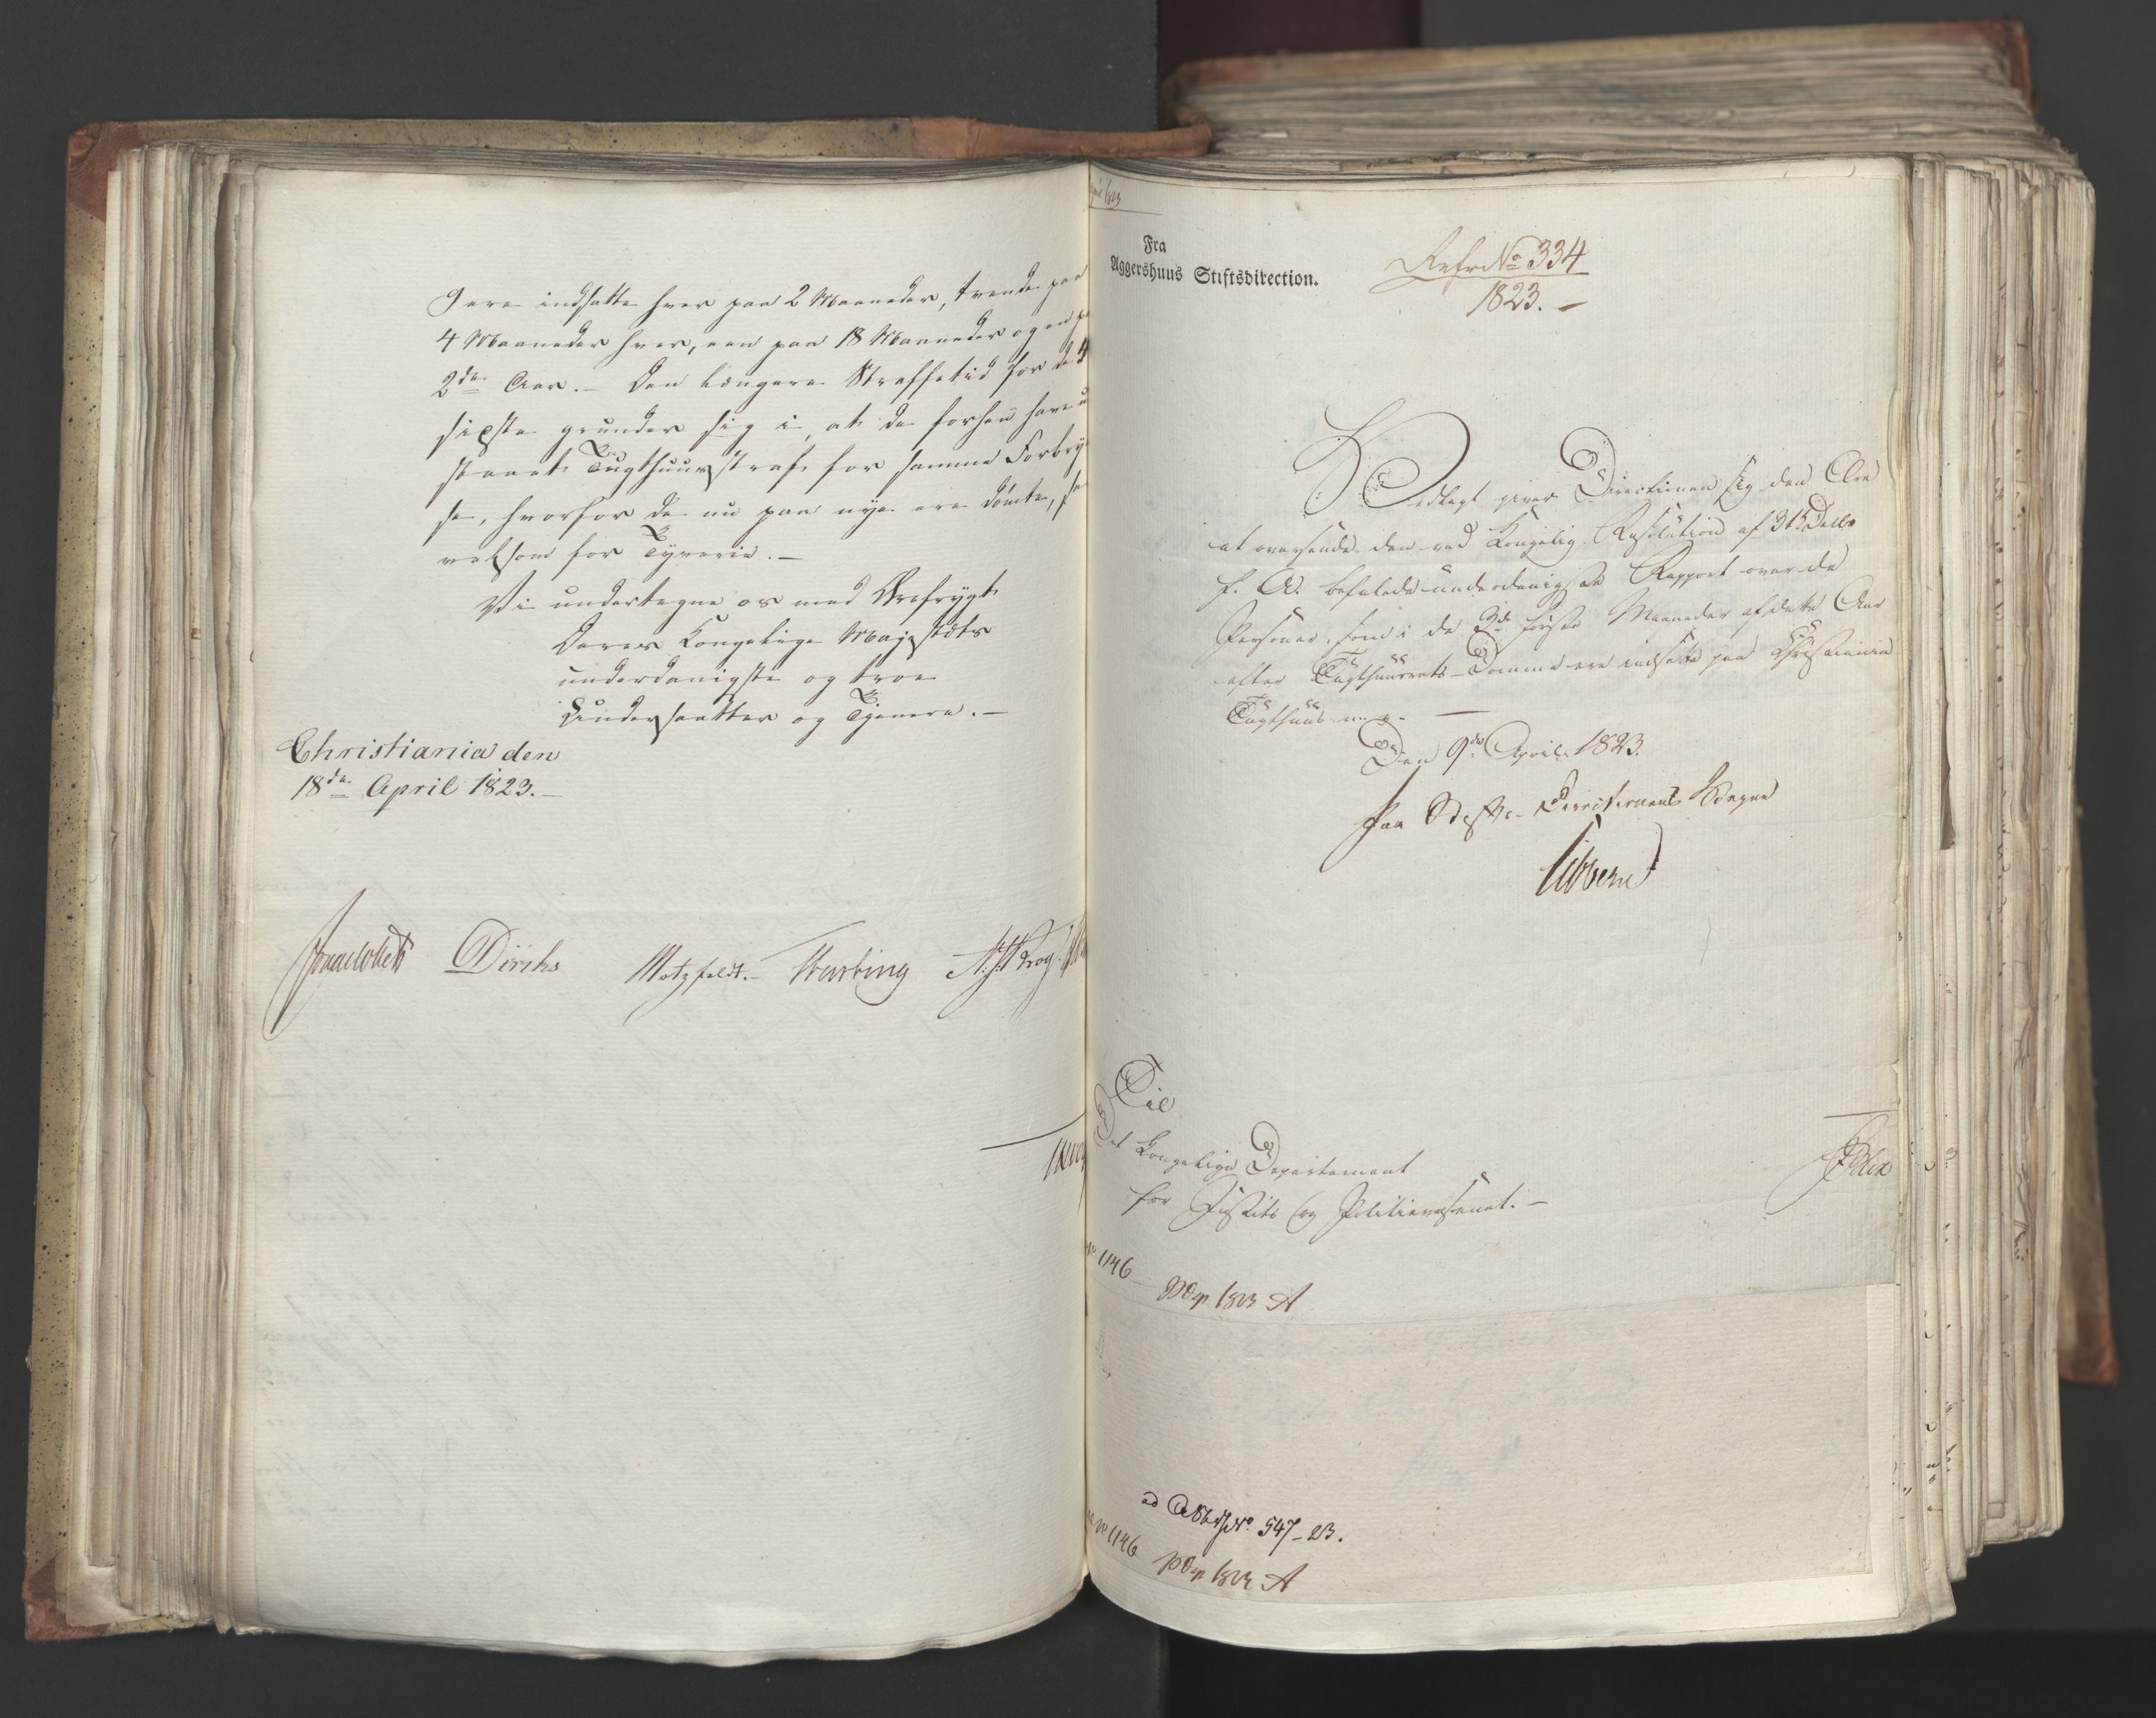 9 ere indsatte hver paa 2 Maaneder, trende paa
4 Maaneder hver, een paa 18 Maaneder og en
2de Aar. – Den længere Straffetid for de
sidste grunder sig i, at de forhen have
staaet Tugthuusstraf for samme Forbry
se, hvorfor de nu paa nye ere dømte,
velsom for Tyverie. –
Vi undertegne os med Ærefrygt
Deres Kongelige Majestæts
underdanigste og troe
Undersaatter og Tjenere. –
Christiania den
18de April 1823. –
Sommerhielm Diriks Motzfeldt. – Treschow
Fra
Aggershuus Stiftsdirection.
Refr No 334
1823. –
Vedlagt giver Directionen sig den Ære
at oversende den ved Kongelig Resolution af 31 Decbr
f. A. befalede underdanigste Rapport over de
Personer, som i de 3de første Maaneder af dette Aar
efter Tugthuusrets-Domme ere indsatte paa Christiania
Tugthuus
Den 9de April 1823.
Paa Stifts-Directionens Vegne
Sibbern
Til
Det Kongelige Departement
for Justits og Politievæsenet. –
No 1146
PDep 1823 A
ad No 547-23.
No 1146 PDep 1823 A